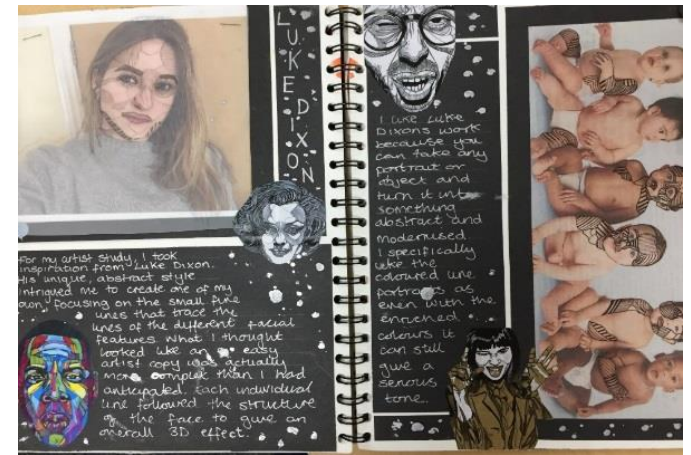 LUKE DIXON
For my artist study, I took
inspiration from Luke Dixon.
His unique, abstract style
intrigued me to create one of my
own, focusing on the small fine
lines that trace the
lines of the different facial
features. What I thought
looked like an easy
artist copy was actually
more complex than I had
anticipated. Each individual
line followed the structure
of the face to give an
overall 3D effect.
I like Luke
Dixons work
because you
can take any
portrait or
object and
turn it into
something
abstract and
modernised
I specifically
like the
coloured line
portraits as
even with the
enriched
colours it
can still
give a
serious
tone.